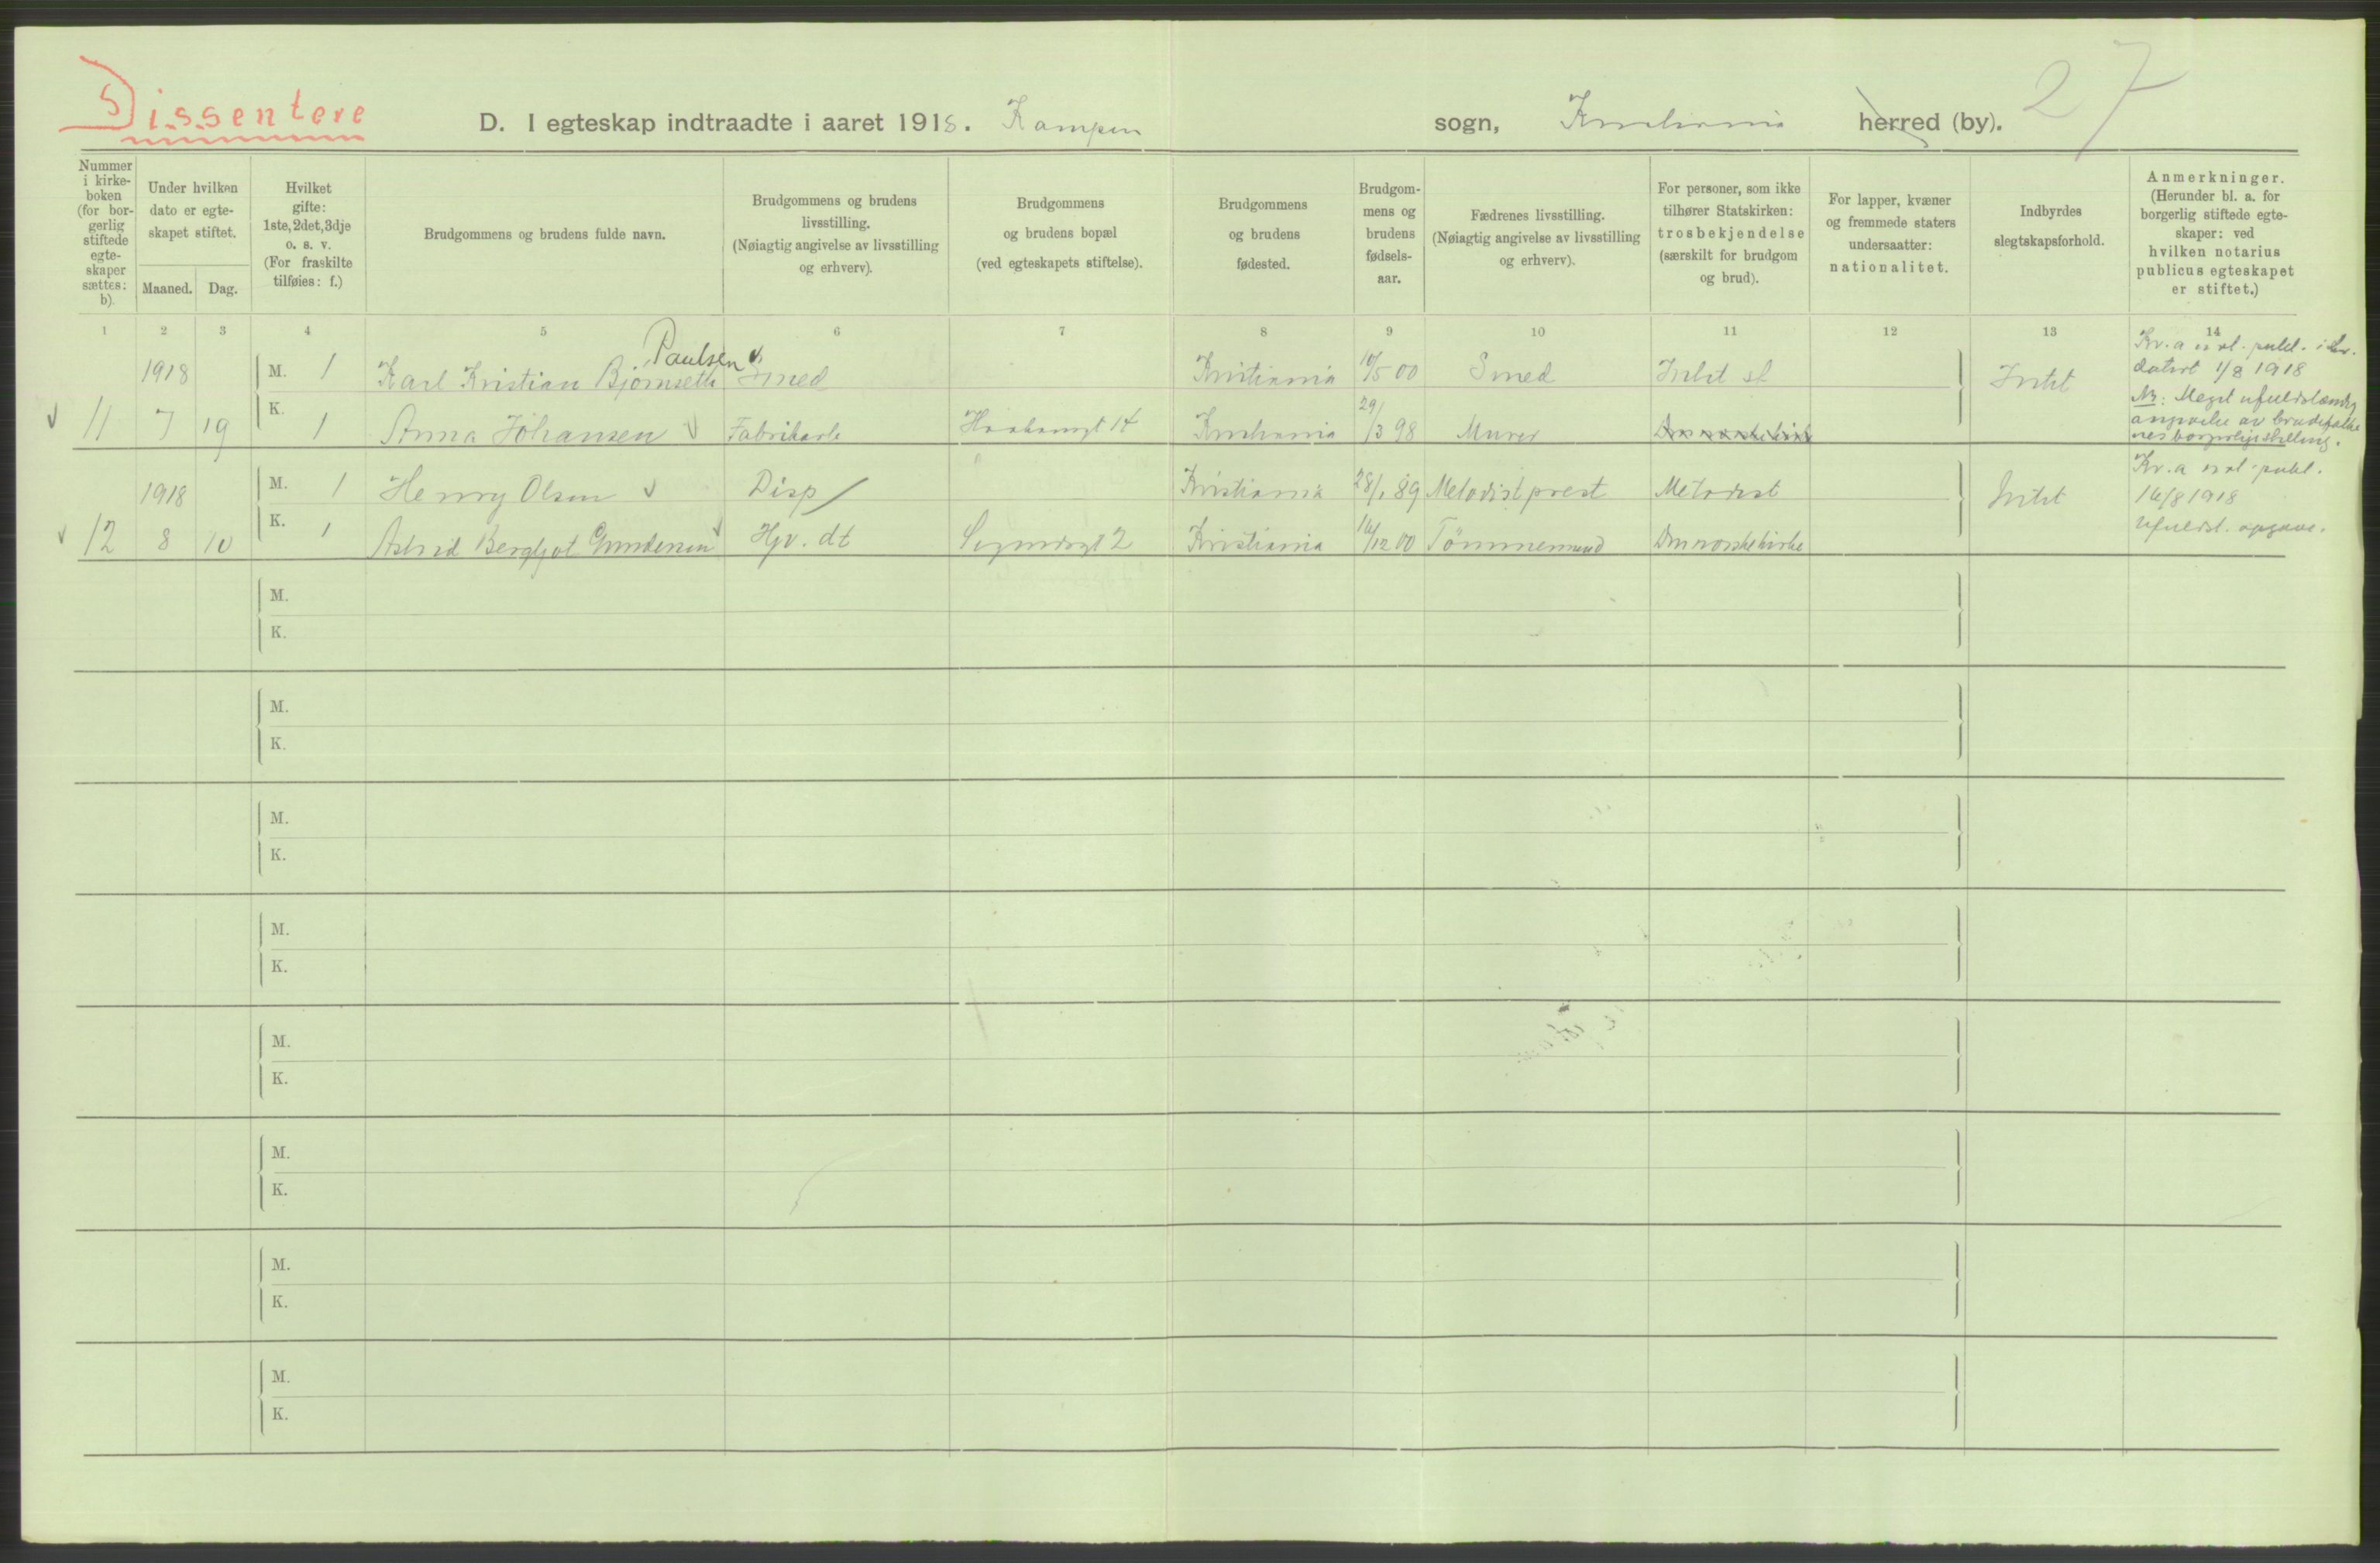 Dissentere
D. I egteskap indtraadte i aaret 1918. Kampen sogn, Kristiania herred (by). 27
Nummer i kirkeboken (for borgerlig stiftede egteskaper sættes: b).
Under hvilken dato er egteskapet stiftet.
Maaned. Dag.
Hvilket gifte: 1ste, 2det, 3dje o. s. v. (For fraskilte tilføies: f.)
Brudgommens og brudens fulde navn.
Brudgommens og brudens livsstilling. (Nøiagtig angivelse av livsstilling og erhverv).
Brudgommens og brudens bopæl (ved egteskapets stiftelse).
Brudgommens og brudens fødested.
Brudgommens og brudens fødselsaar.
Fædrenes livsstilling. (Nøiagtig angivelse av livsstilling og erhverv).
For personer, som ikke tilhører Statskirken: trosbekjendelse (særskilt for brudgom og brud).
For lapper, kvæner og fremmede staters undersaatter: nationalitet.
Indbyrdes slegtskapsforhold.
Anmerkninger. (Herunder bl. a. for borgerlig stiftede egteskaper: ved hvilken notarius publicus egteskapet er stiftet.)
1 2 3 4 5 6 7 8 9 10 11 12 13 14
1918 M. 1 Karl Kristian Bjørnseth Paulsen Smed Kristiania 10/5 00 Smed Intet st Intet
11 7 19 K. 1 Anna Johansen Fabrikarb 14 Kristiania 29/3 98 Murer Den norske kirke
Kr.a not. publ.
datert 1/8 1918
NB: Meget ufuldstændig
angivelse av brudefolke
nes borgerlige stilling.
1918 M. 1 Henry Olsen Disp Kristiania 28/1 89 Metodistprest Metodist Intet
12 8 10 K. 1 Astrid Bergljot Gundersen Hjv. dt 2 Kristiania 16/12 00 Tømmermand Den norske kirke
Kr.a not. publ.
16/8 1918
Ufuldst. opgave.
M.
K.
M.
K.
M.
K.
M.
K.
M.
K.
M.
K.
M.
K.
M.
K.